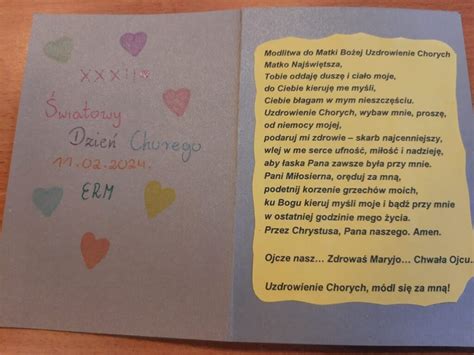 XXXII
Światowy
Dzień Chorego
11.02.2024.
ERM
Modlitwa do Matki Bożej Uzdrowienie Chorych
Matko Najświętsza,
Tobie oddaję duszę i ciało moje,
do Ciebie kieruję me myśli,
Ciebie błagam w mym nieszczęściu.
Uzdrowienie Chorych, wybaw mnie, proszę,
od niemocy mojej,
podaruj mi zdrowie – skarb najcenniejszy,
wlej w me serce ufność, miłość i nadzieję,
aby łaska Pana zawsze była przy mnie.
Pani Miłosierna, oręduj za mną,
podetnij korzenie grzechów moich,
ku Bogu kieruj myśli moje i bądź przy mnie
w ostatniej godzinie mego życia.
Przez Chrystusa, Pana naszego. Amen.
Ojcze nasz... Zdrowaś Maryjo... Chwała Ojcu...
Uzdrowienie Chorych, módl się za mną!